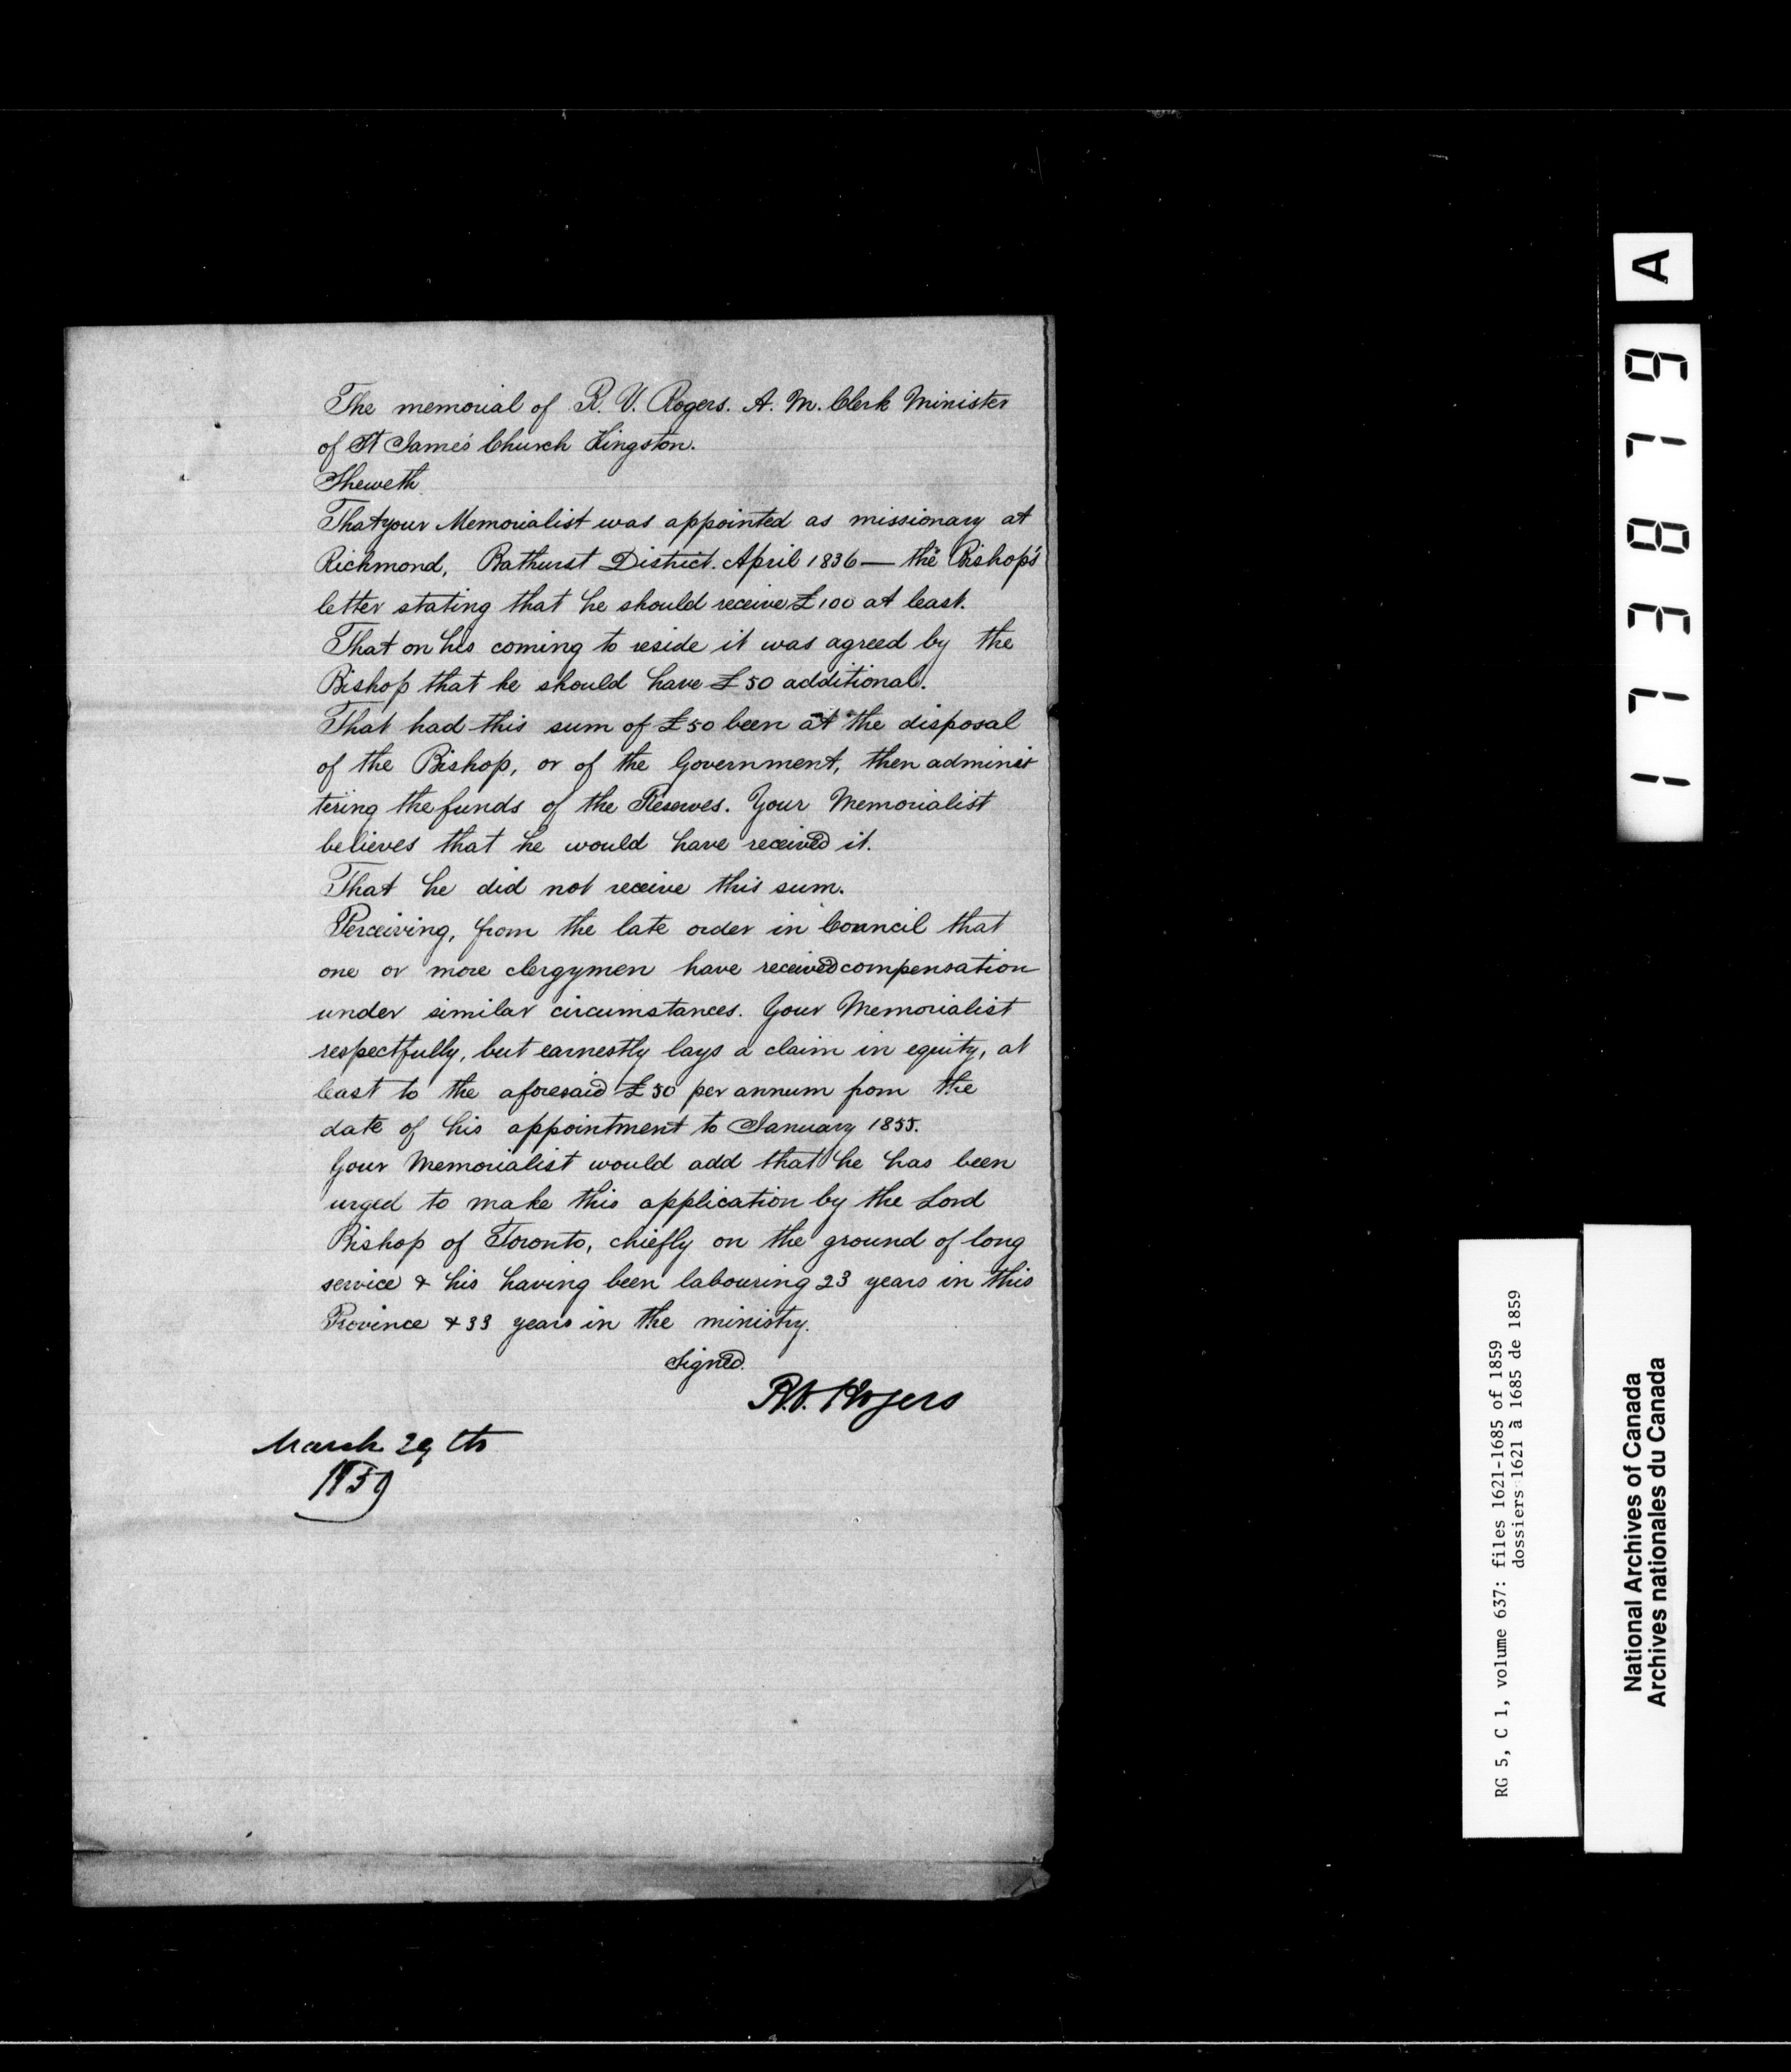 The memorial of R. V. Rogers. A. M. Clerk Minister
of St James' Church Kingston.
Sheweth
That your Memorialist was appointed as missionary at
Richmond, Bathurst District. April 1836 — the Bishop's
letter stating that he should receive £100 at least.
That on his coming to reside it was agreed by the
Bishop that he should have £50 additional.
That had this sum of £50 been at the disposal
of the Bishop, or of the Government, then adminis
tering the funds of the Reserves. Your Memorialist
believes that he would have received it.
That he did not receive this sum.
Perceiving, from the late order in Council that
one or more clergymen have received compensation
under similar circumstances. Your Memorialist
respectfully, but earnestly lays a claim in equity, at
least to the aforesaid £50 per annum from the
date of his appointment to January 1855.
Your Memorialist would add that he has been
urged to make this application by the Lord
Bishop of Toronto, chiefly on the ground of long
service & his having been labouring 23 years in this
Province & 33 years in the ministry.
Signed.
R.V. Rogers
March 29th
1859
A
11738719
RG 5, C 1, volume 637: files 1621-1685 of 1859
dossiers 1621 à 1685 de 1859
National Archives of Canada
Archives nationales du Canada